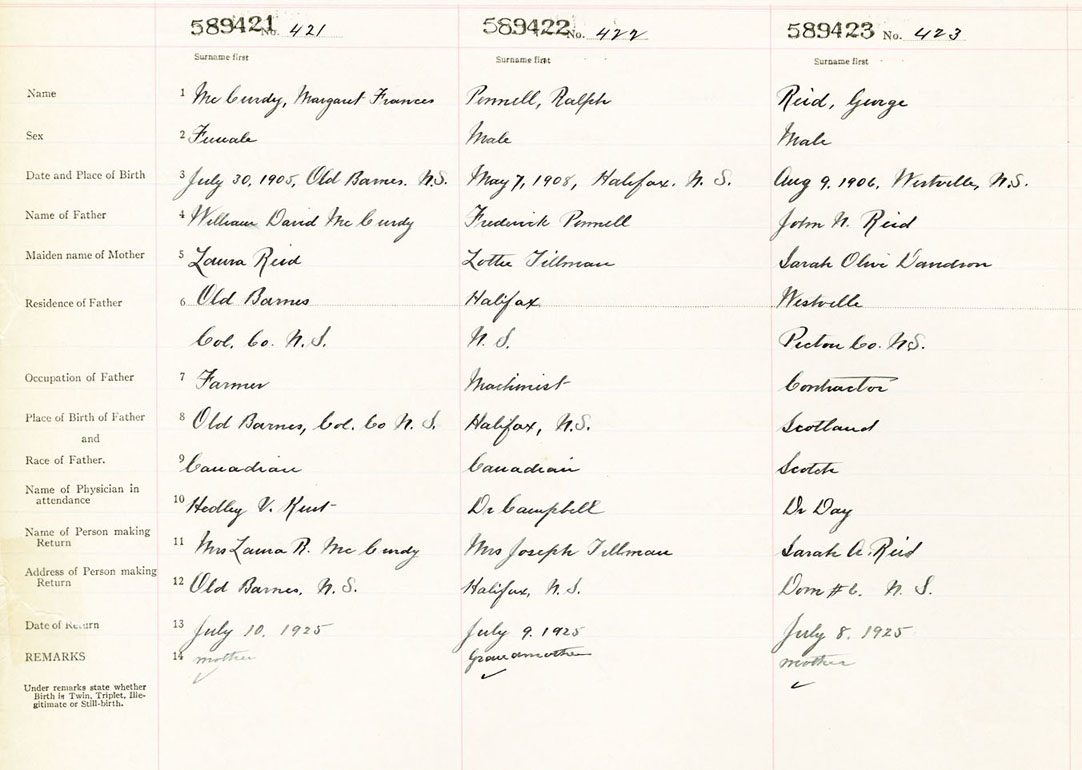 589421 No. 421 589422 No. 422 589423 No. 423
Surname first Surname first Surname first
Name 1 McCurdy, Margaret Frances Pennell, Ralph Reid, George
Sex 2 Female Male Male
Date and Place of Birth 3 July 30, 1905, Old Barnes. N.S. May 7, 1908, Halifax. N. S. Aug 9, 1906, Westville, N.S.
Name of Father 4 William David McCurdy Frederick Pennell John N. Reid
Maiden name of Mother 5 Laura Reid Lottie Tillman Sarah Olive Davidson
Residence of Father 6 Old Barnes Halifax Westville
Col. Co. N. S. N. S. Pictou Co. N.S.
Occupation of Father 7 Farmer Machinist Contractor
Place of Birth of Father 8 Old Barnes, Col. Co N. S. Halifax, N.S. Scotland
and
Race of Father. 9 Canadian Canadian Scotch
Name of Physician in
attendance 10 Hedley V. Kent Dr Campbell Dr Day
Name of Person making
Return 11 Mrs Laura R. McCurdy Mrs Joseph Tillman Sarah O. Reid
Address of Person making
Return 12 Old Barnes, N. S. Halifax, N. S. Dom #6. N. S.
Date of Return 13 July 10. 1925 July 9. 1925 July 8. 1925
REMARKS 14 mother Grandmother mother
Under remarks state whether
Birth is Twin, Triplet, Ille-
gitimate or Still-birth.